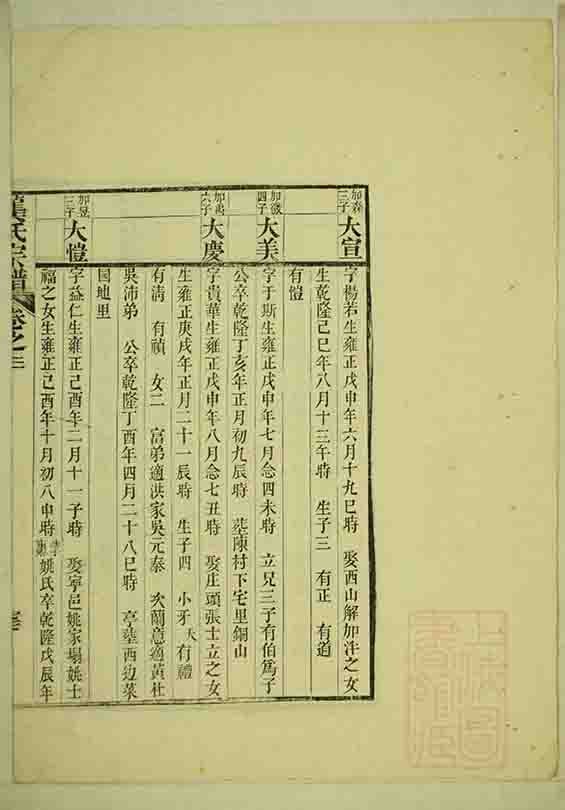 加森三子 大宣
字楊若生雍正戊申年六月十九巳時 娶西山解加泮之女
生乾隆己巳年八月十三午時 生子三 有正 有道
有愷
加徵四子 大美
字于斯生雍正戊申年七月念四未時 立兄三子有伯爲子
公卒乾隆丁亥年正月初九辰時 塟陳村下宅里銅山
加禹六子 大慶
字貴華生雍正戊申年八月念七丑時 娶庄頭張士立之女
生雍正庚戌年正月二十一辰時 生子四 小牙夭 有禮
有満 有禎 女二 富弟適洪家吳元泰 次蘭意適黃杜
吳沛弟 公卒乾隆丁酉年四月二十八巳時 亭塟西边菜
园地里
加昱三子 大愷
字益仁生雍正己酉年二月十一子時 娶寧邑姚家塌姚士
福之女生雍正己酉年十月初八申時 姚氏卒乾隆戊辰年
氏宗譜 卷之二